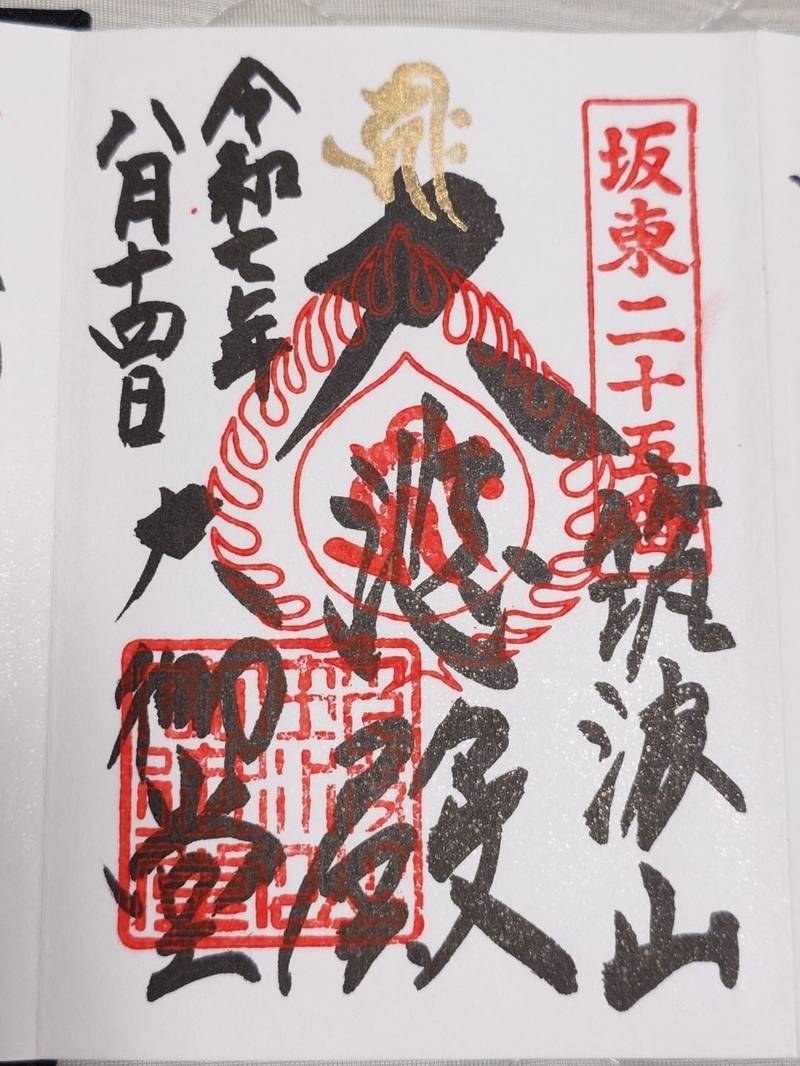 坂東二十五番
筑波山
大悲殿
大御堂
令和七年
八月十四日